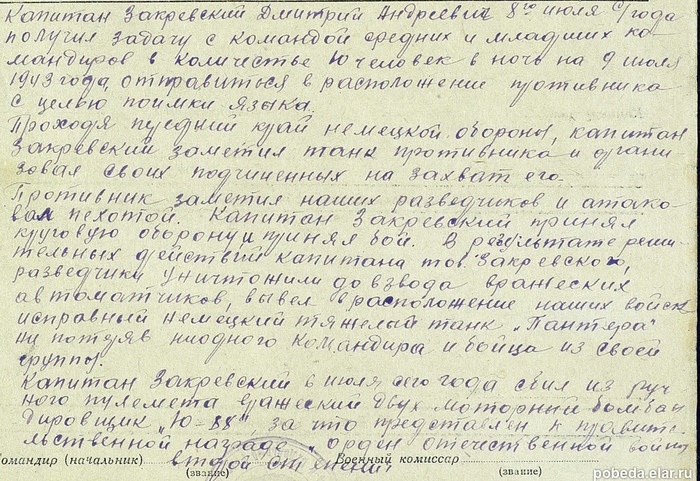 Капитан Закревский Дмитрий Андреевич 8го июля с/года
получил задачу с командой средних и младших ко-
мандиров в количестве 10 человек в ночь на 9 июля
1943 года, отправиться в расположение противника
с целью поимки языка.
Проходя передний край немецкой обороны, капитан
Закревский заметил танк противника и органи-
зовал своих подчиненных на захват его.
Противник заметил наших разведчиков и атако-
вал пехотой. Капитан Закревский принял
круговую оборону и принял бой. В результате реши-
тельных действий капитана тов. Закревского,
разведчики уничтожили до взвода вражеских
автоматчиков, вывел в расположение наших войск
исправный немецкий тяжелый танк „Пантера"
не потеряв ниодного командира и бойца из своей
группы.
Капитан Закревский 6 июля сего года сбил из руч-
ного пулемета вражеский двух моторный бомбар-
дировщик „Ю-88", за что представлен к правите-
льственной награде „орден отечественной войны
второй степени"
омандир (начальник) Военный комиссар
(звание) (звание)
pobeda.elar.ru